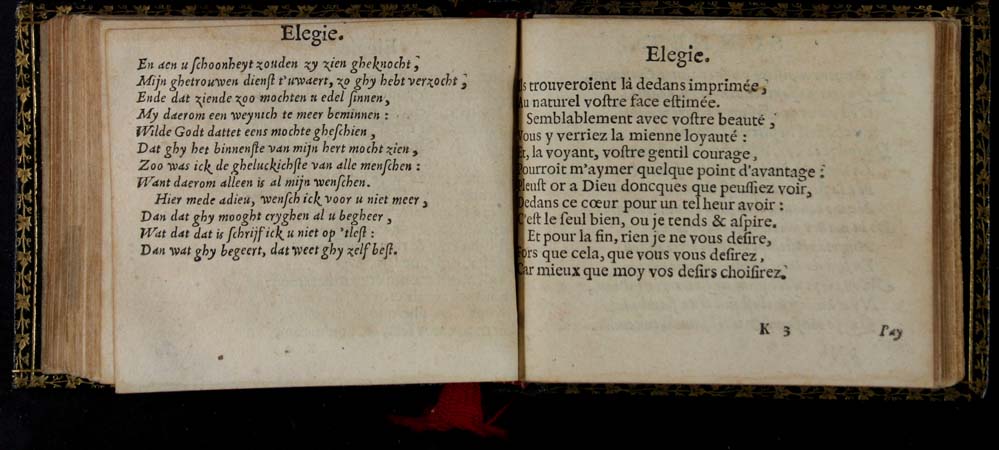 Elegie.
En aen u ſchoonheyt zouden zy zien gheknocht,
Mijn ghetrouwen dienſt t'uwaert, zo ghy hebt verzocht,
Ende dat ziende zoo mochten u edel ſinnen,
My daerom een weynich te meer beminnen:
Wilde Godt dattet eens mochte gheſchien,
Dat ghy het binnenſte van mijn hert mocht zien,
Zoo was ick de gheluckichſte van alle menſchen:
Want daerom alleen is al mijn wenſchen.
Hier mede adieu, wenſch ick voor u niet meer,
Dan dat ghy mooght cryghen al u begheer,
Wat dat dat is ſchrijf ick u niet op 'tleſt:
Dan wat ghy begeert, dat weet ghy zelf beſt.
Elegie.
Ils trouveroient là dedans imprimée,
Au naturel voſtre face eſtimée.
Semblablement avec voſtre beauté,
Vous y verriez la mienne loyauté:
Et, la voyant, voſtre gentil courage,
Pourroit m'aymer quelque point d'avantage:
Pleuſt or a Dieu doncques que peuſſiez voir,
Dedans ce cœur pour un tel heur avoir:
C'eſt le ſeul bien, ou je tends & aſpire.
Et pour la fin, rien je ne vous deſire,
Fors que cela, que vous vous deſirez,
Car mieux que moy vos deſirs choiſirez.
K 3
Pay